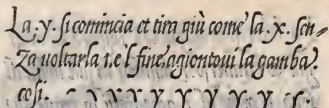 La .y. si comincia et tira giù come la .x. sen=
Za uoltarla i.e l fine, agiontoui la gamba
cosi. y y y y y y y y .